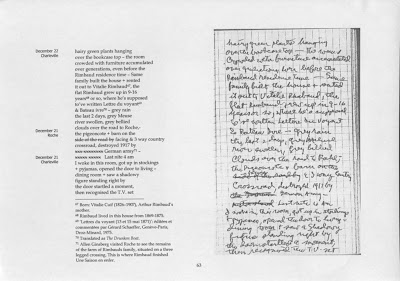 December 22
Charleville
hairy green plants hanging
over the bookcase top - the room
crowded with furniture accumulated
over generations, even before the
Rimbaud residence time - Same
family built the house + rented
it out to Vitalie Rimbaud⁶⁷, the
flat Rimbaud grew up in 9-16
years⁶⁸ or so, where he's supposed
to've written Lettre du voyant⁶⁹
& Bateau Ivre⁷⁰ - grey rain
the last 2 days, grey Meuse
river swollen, grey bellied
December 21
Roche
clouds over the road to Roche,
the pigeonnier + barn on the
side of the road by facing & 3 way country
crossroad, destroyed 1917 by
German army⁷¹ -
December 21
Charleville
Last nite 4 am
I woke in this room, got up in stockings
+ pyjamas, opened the door to living +
dining room + saw a shadowy
figure standing right by
the door startled a moment,
then recognised the T.V. set
⁶⁷ Born Vitalie Cuif (1826-1907), Arthur Rimbaud's
mother.
⁶⁸ Rimbaud lived in this house from 1869-1875.
⁶⁹ "Lettres du voyant [13 et 15 mai 1871]" éditées et
commentées par Gérard Schaeffer, Genève-Paris,
Droz-Minard, 1975.
⁷⁰ Translated as The Drunken Boat.
⁷¹ Allen Ginsberg visited Roche to see the remains
of the farm of Rimbauds family, situated on a three
legged crossing. This is where Rimbaud finished
Une Saison en enfer.
63
hairy green plants hanging
over bookcase top - the room
Crowded with furniture accumulated
over generations, even before the
Rimbaud residence time - Same
family built the house + rented
it out to Vitalie Rimbaud, the
flat Rimbaud grew up in 9-16
years or so, where he's supposed
to've written Lettre du voyant
& Bateau Ivre - grey rain
the last 2 days, grey Meuse
river swollen, grey bellied
Clouds over the road to Roche,
the pigeonnier + barn on the
facing & 3 way country
Crossroad, destroyed 1917 by
German army -
Last nite 4 am
I woke in this room, got up in stockings
+ pyjamas, opened the door to living +
dining room & saw a shadowy
figure standing right by
the door startled a moment,
then recognised the T.V. set